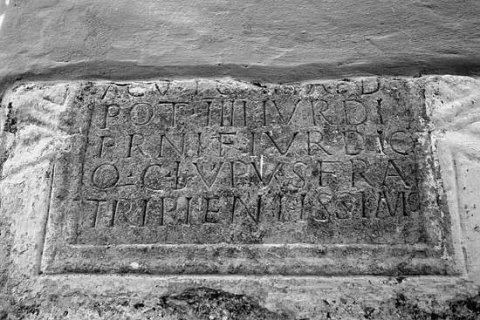 POT IIII IVR DI
PR NIF IVR DIC
Q·C·LVPVS FRA
TRI PIENTISSIMO